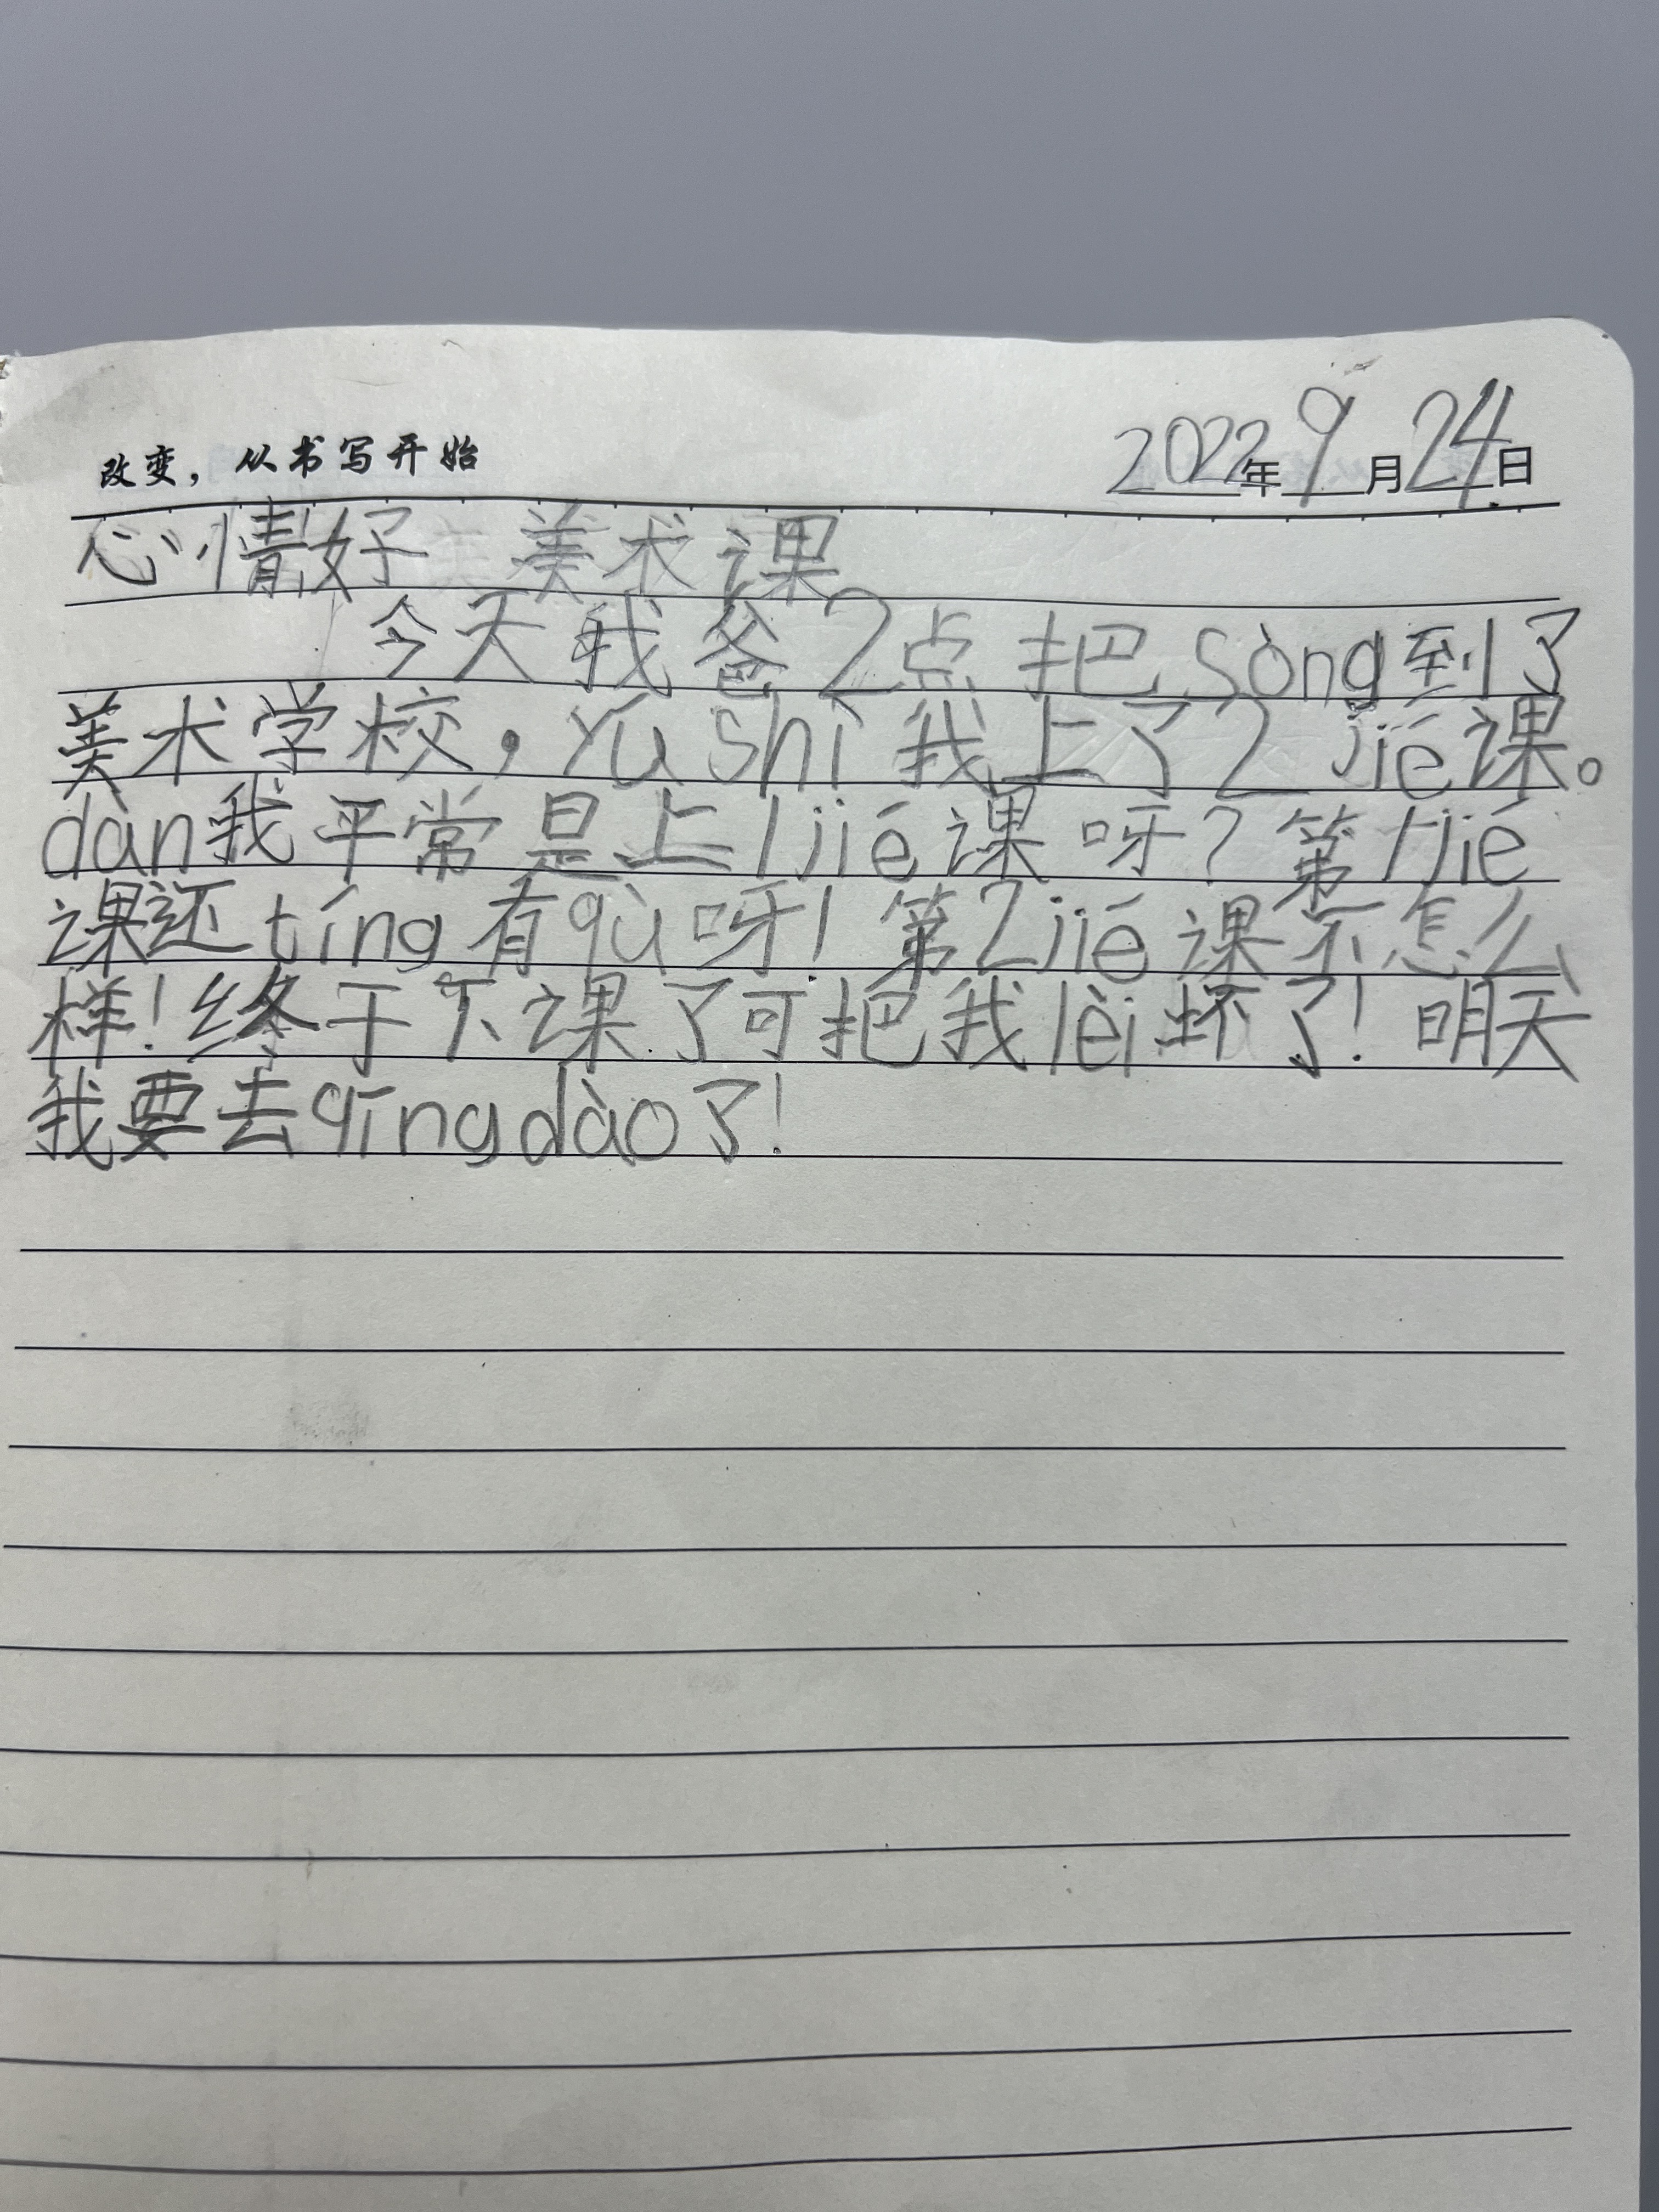 改变，从书写开始 2022年9月24日
心情好 美术课
今天我爸2点把sòng到了
美术学校，yú shì我上了2jié课。
dàn我平常是上1jié课呀？第1jié
课还tíng有qù呀！第2jié课不怎么
样！终于下课了可把我lèi坏了！明天
我要去qīngdǎo了！